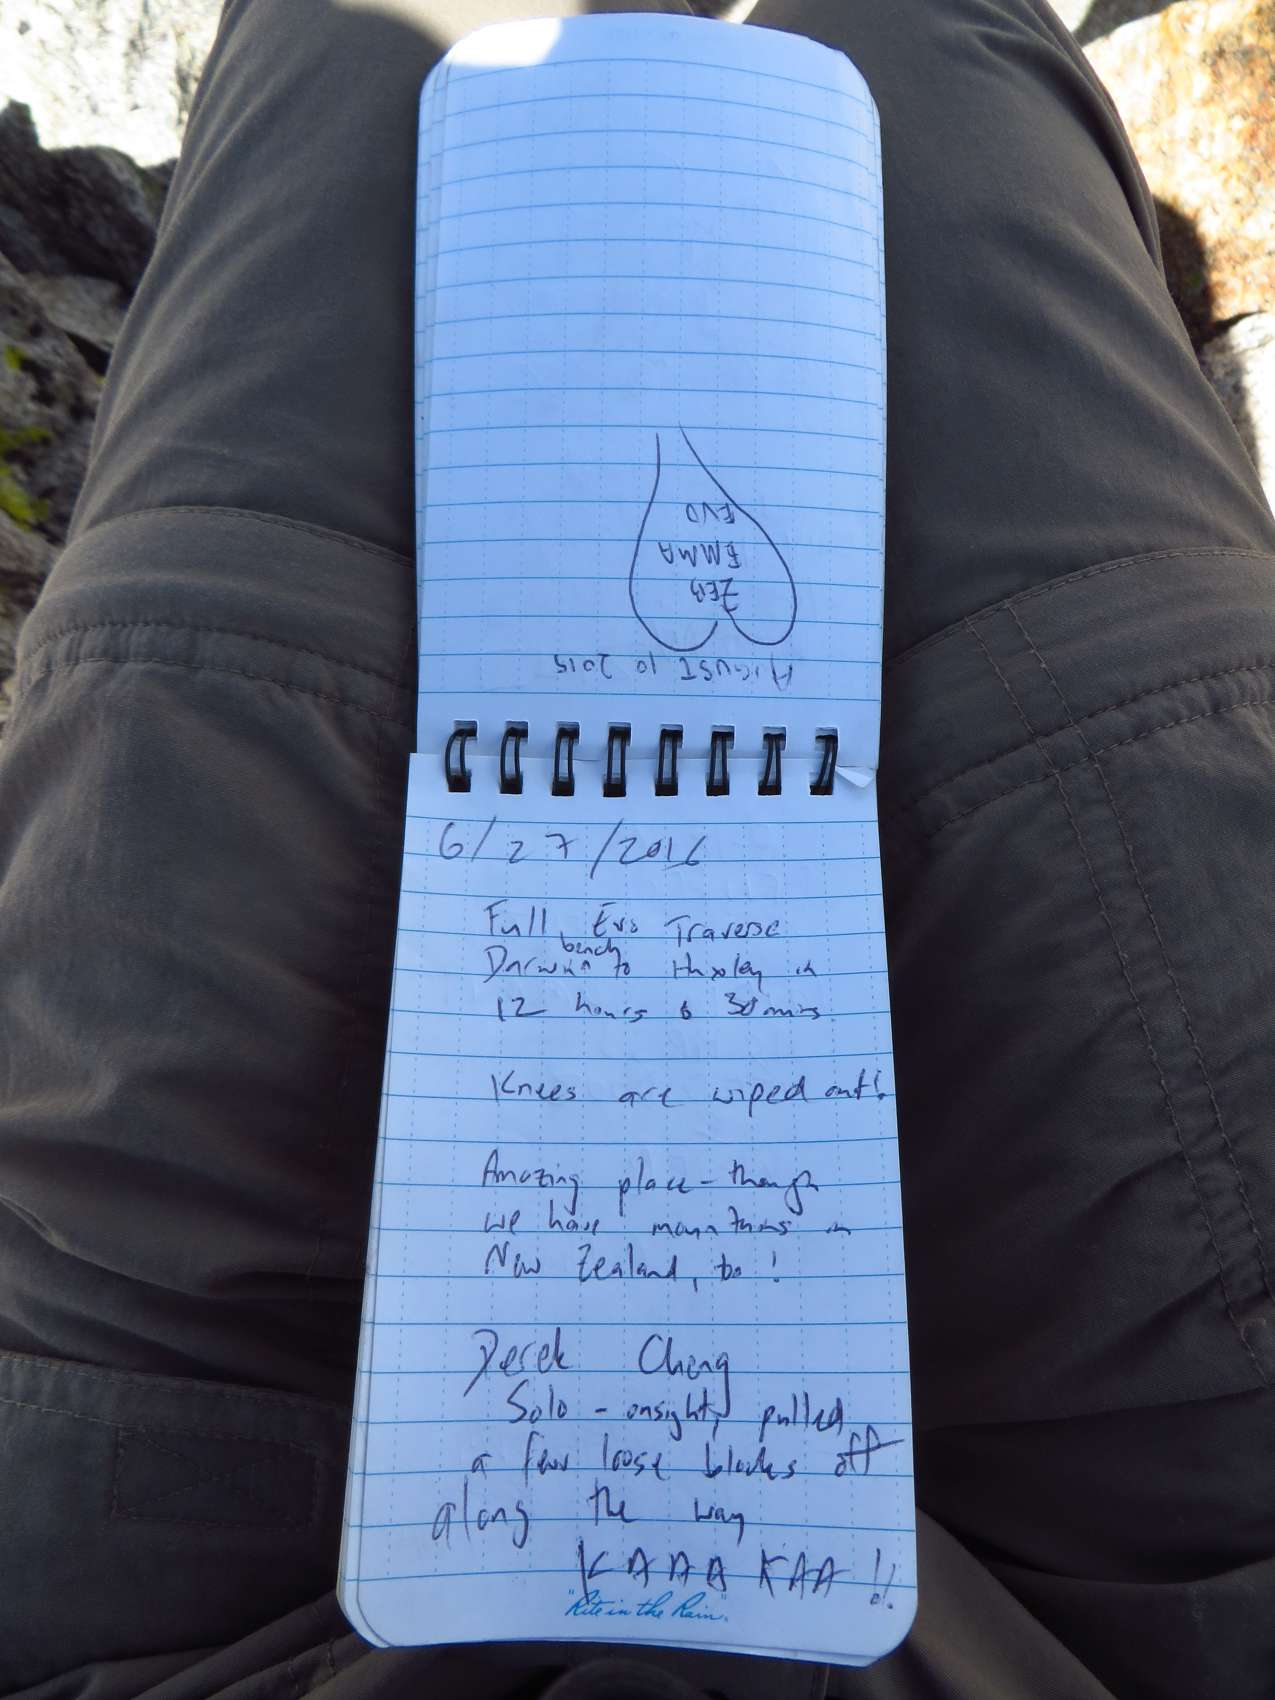 AUGUST 10 2015
ZEB
EMMA
EVO
6/27/2016
Full Evo Traverse
Darwin bench to Huxley in
12 hours & 30 mins.
Knees are wiped out!
Amazing place - though
we have mountains in
New Zealand, too!
Derek Cheng
Solo - onsight, pulled
a few loose blocks off
along the way
KAAA KAA!!
"Rite in the Rain".